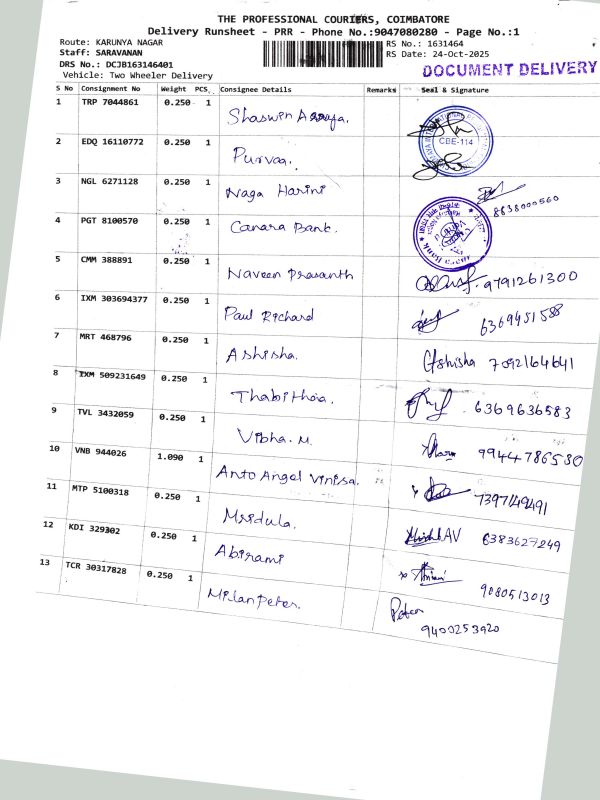 THE PROFESSIONAL COURIERS, COIMBATORE
Delivery Runsheet - PRR - Phone No.:9047080280 - Page No.:1
Route: KARUNYA NAGAR RS No.: 1631464
Staff: SARAVANAN RS Date: 24-Oct-2025
DRS No.: DCJB163146401
DOCUMENT DELIVERY
Vehicle: Two Wheeler Delivery
S No Consignment No Weight PCS Consignee Details Remarks Seal & Signature
1 TRP 7044861 0.250 1 Shaswin
CBE-114
2 EDQ 16110772 0.250 1 Purvaa.
3 NGL 6271128 0.250 1 Naga Harini 8838000560
4 PGT 8100570 0.250 1 Canara Bank.
5 CMM 388891 0.250 1 Naveen Prasanth 9791261300
6 IXM 303694377 0.250 1 Paul Richard 6369451588
7 MRT 468796 0.250 1 Ashisha. Ashisha 7092164641
8 IXM 509231649 0.250 1 Thabitha. 6369636583
9 TVL 3432059 0.250 1 Vibha. M. 9944786530
10 VNB 944026 1.090 1 Anto Angel Vinisa. 7397149491
11 MTP 5100318 0.250 1 Mridula. 6383627249
12 KDI 329302 0.250 1 Abirami 9080513013
13 TCR 30317828 0.250 1 Milan Peter. Peter
9400253920